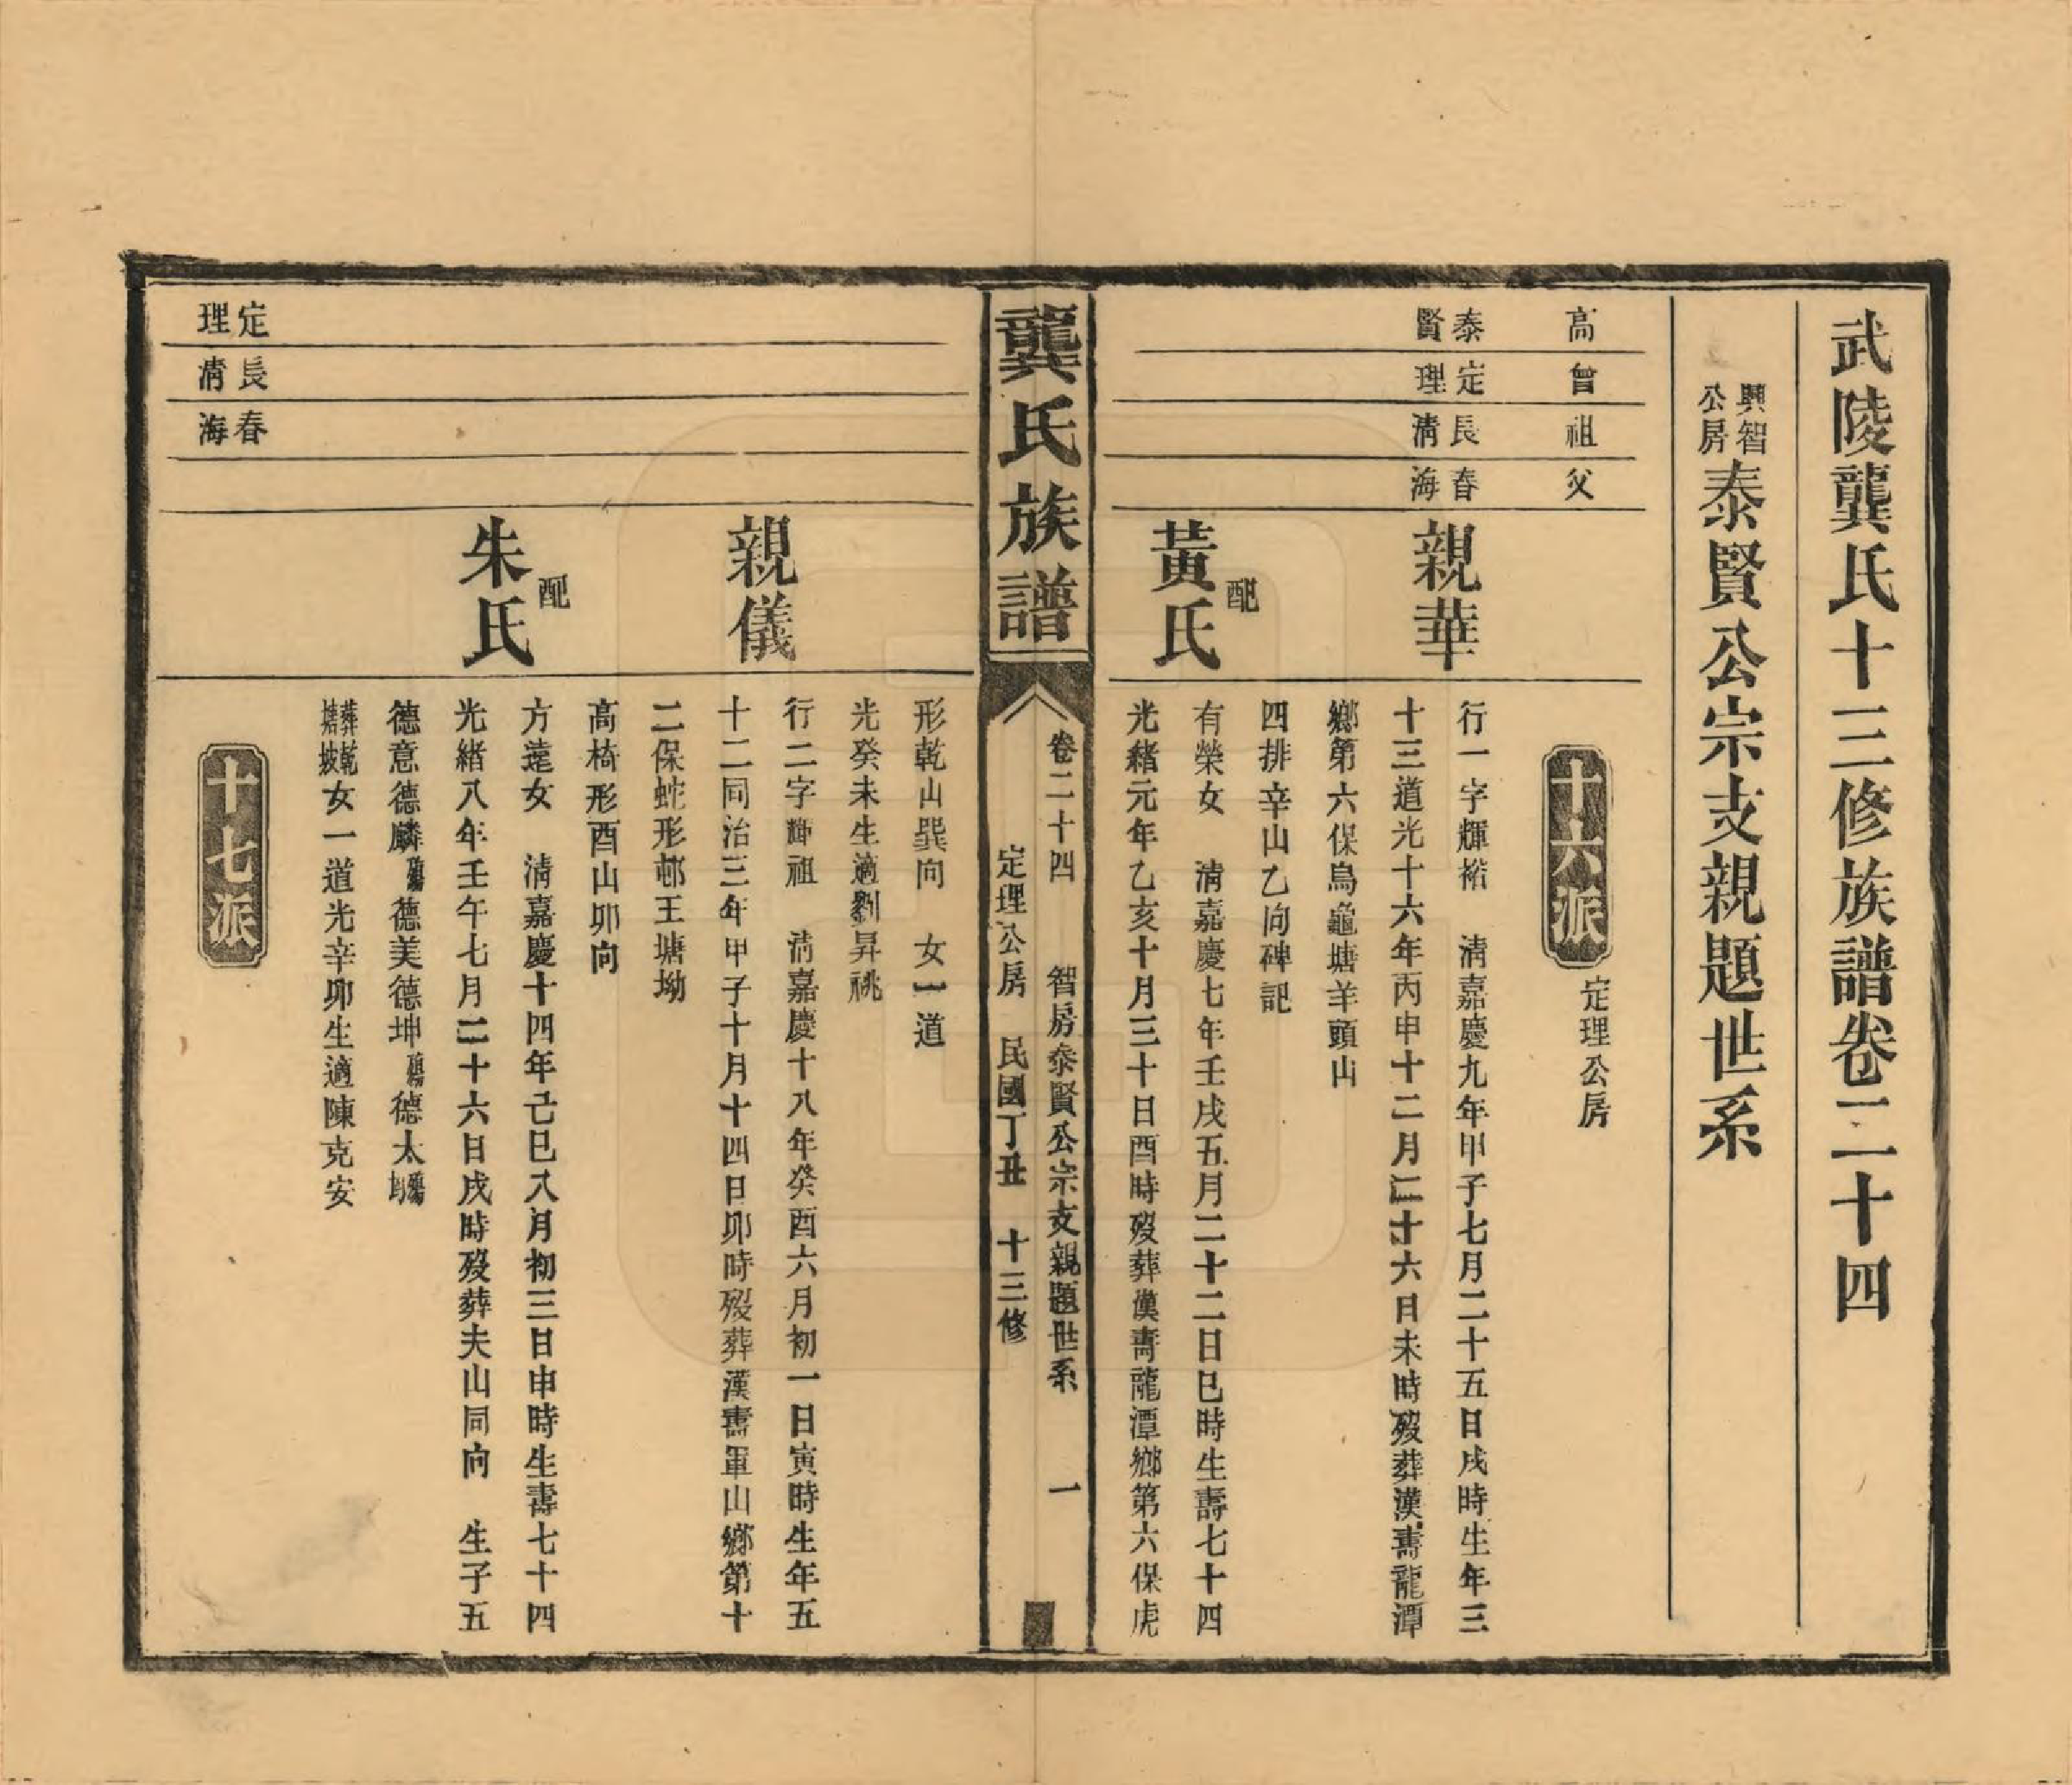 武陵龔氏十三修族譜卷二十四
興智公房泰賢公宗支親題世系
高
曾
祖
父
十六派
定理公房
泰賢
定理
長清
春海
親華
行一字輝裕 清嘉慶九年甲子七月二十五日戌時生年三
十三道光十六年丙申十二月二十六日未時歿葬漢壽龍潭
鄉第六保烏龜塘羊頭山
四排辛山乙向碑記
配
黃氏
有榮女 清嘉慶七年壬戌五月二十二日巳時生壽七十四
光緒元年乙亥十月三十日酉時歿葬漢壽龍潭鄉第六保虎
龔氏族譜
卷二十四 智房泰賢公宗支親題世系 一
定理公房 民國丁丑 十三修
形乾山巽向 女一道
光癸未生適劉昇祧
親儀
行二字輝祖 清嘉慶十八年癸酉六月初一日寅時生年五
十二同治三年甲子十月十四日卯時歿葬漢壽軍山鄉第十
二保蛇形邨王塘坳
高椅形酉山卯向
配
朱氏
方遠女 清嘉慶十四年己巳八月初三日申時生壽七十四
光緒八年壬午七月二十六日戌時歿葬夫山同向 生子五
德意德麟德美德坤德太
葬乾塘坡女一道光辛卯生適陳克安
定理
長清
春海
十七派